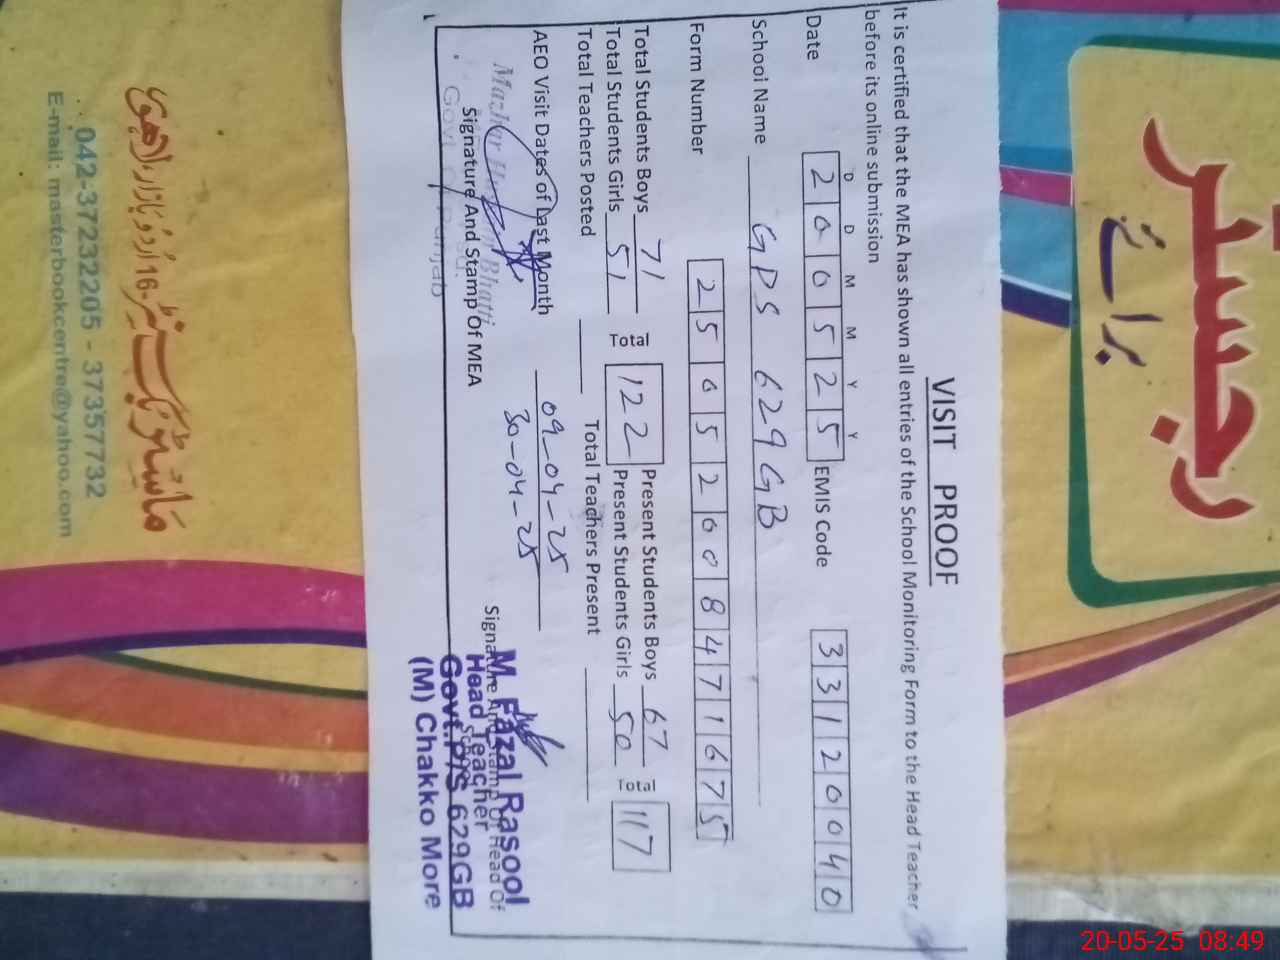 رجسٹر
برائے
VISIT PROOF
It is certified that the MEA has shown all entries of the School Monitoring Form to the Head Teacher
before its online submission
D D M M Y Y
Date 200525 EMIS Code 33120040
School Name GPS 629GB
Form Number 2505200847 1675
Total Students Boys 71 Total 122 Present Students Boys 67 Total 117
Total Students Girls 51 Present Students Girls 50
Total Teachers Posted Total Teachers Present
AEO Visit Dates of Last Month 09-04-25
30-04-25
Mazhar Bhatti
Signature And Stamp Of MEA
Govt. Punjab
Signature And Stamp Of Head Of
School
M. Fazal Rasool
Head Teacher
Govt.P/S 629GB
(M) Chakko More
16-اردو بازار لاہور
042-37232205 - 37357732
E-mail: masterbookcentre@yahoo.com
20-05-25 08:49